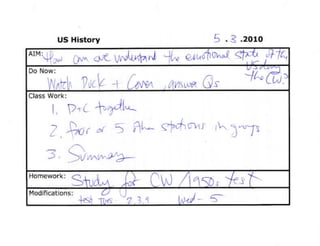 US History 5.3.2010
AIM: How can we understand the emotional state of the
US during
the CW?
Do Now:
Watch Duck + Cover, answer Qs
Class Work:
1. D+C together
2. four or 5 stations in groups
3. Summary
Homework: Study for CW/1950s test
Modifications: test Tues. 2.3.9 Wed - 5